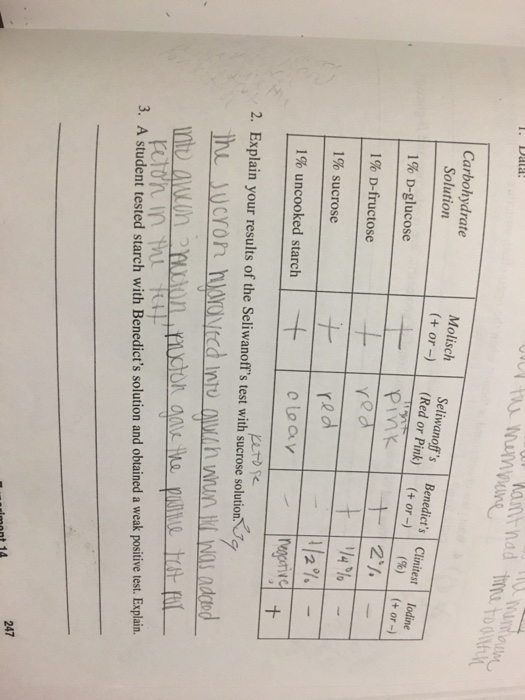 membrane
hasn't had time to
over the membrane
1. Data:
Carbohydrate Solution Molisch (+ or –) Seliwanoff's (Red or Pink) Benedict's (+ or –) Clinitest (%) Iodine (+ or –)
1% D-glucose + light pink + 2% –
1% D-fructose + red + 1/4% –
1% sucrose + red – 1/2% –
1% uncooked starch + clear – negative +
ketose
2. Explain your results of the Seliwanoff's test with sucrose solution.
the sucron hydrolyzed into when was added
into fructon gave the positive test for
keton in the test
3. A student tested starch with Benedict's solution and obtained a weak positive test. Explain.
Experiment 14 247